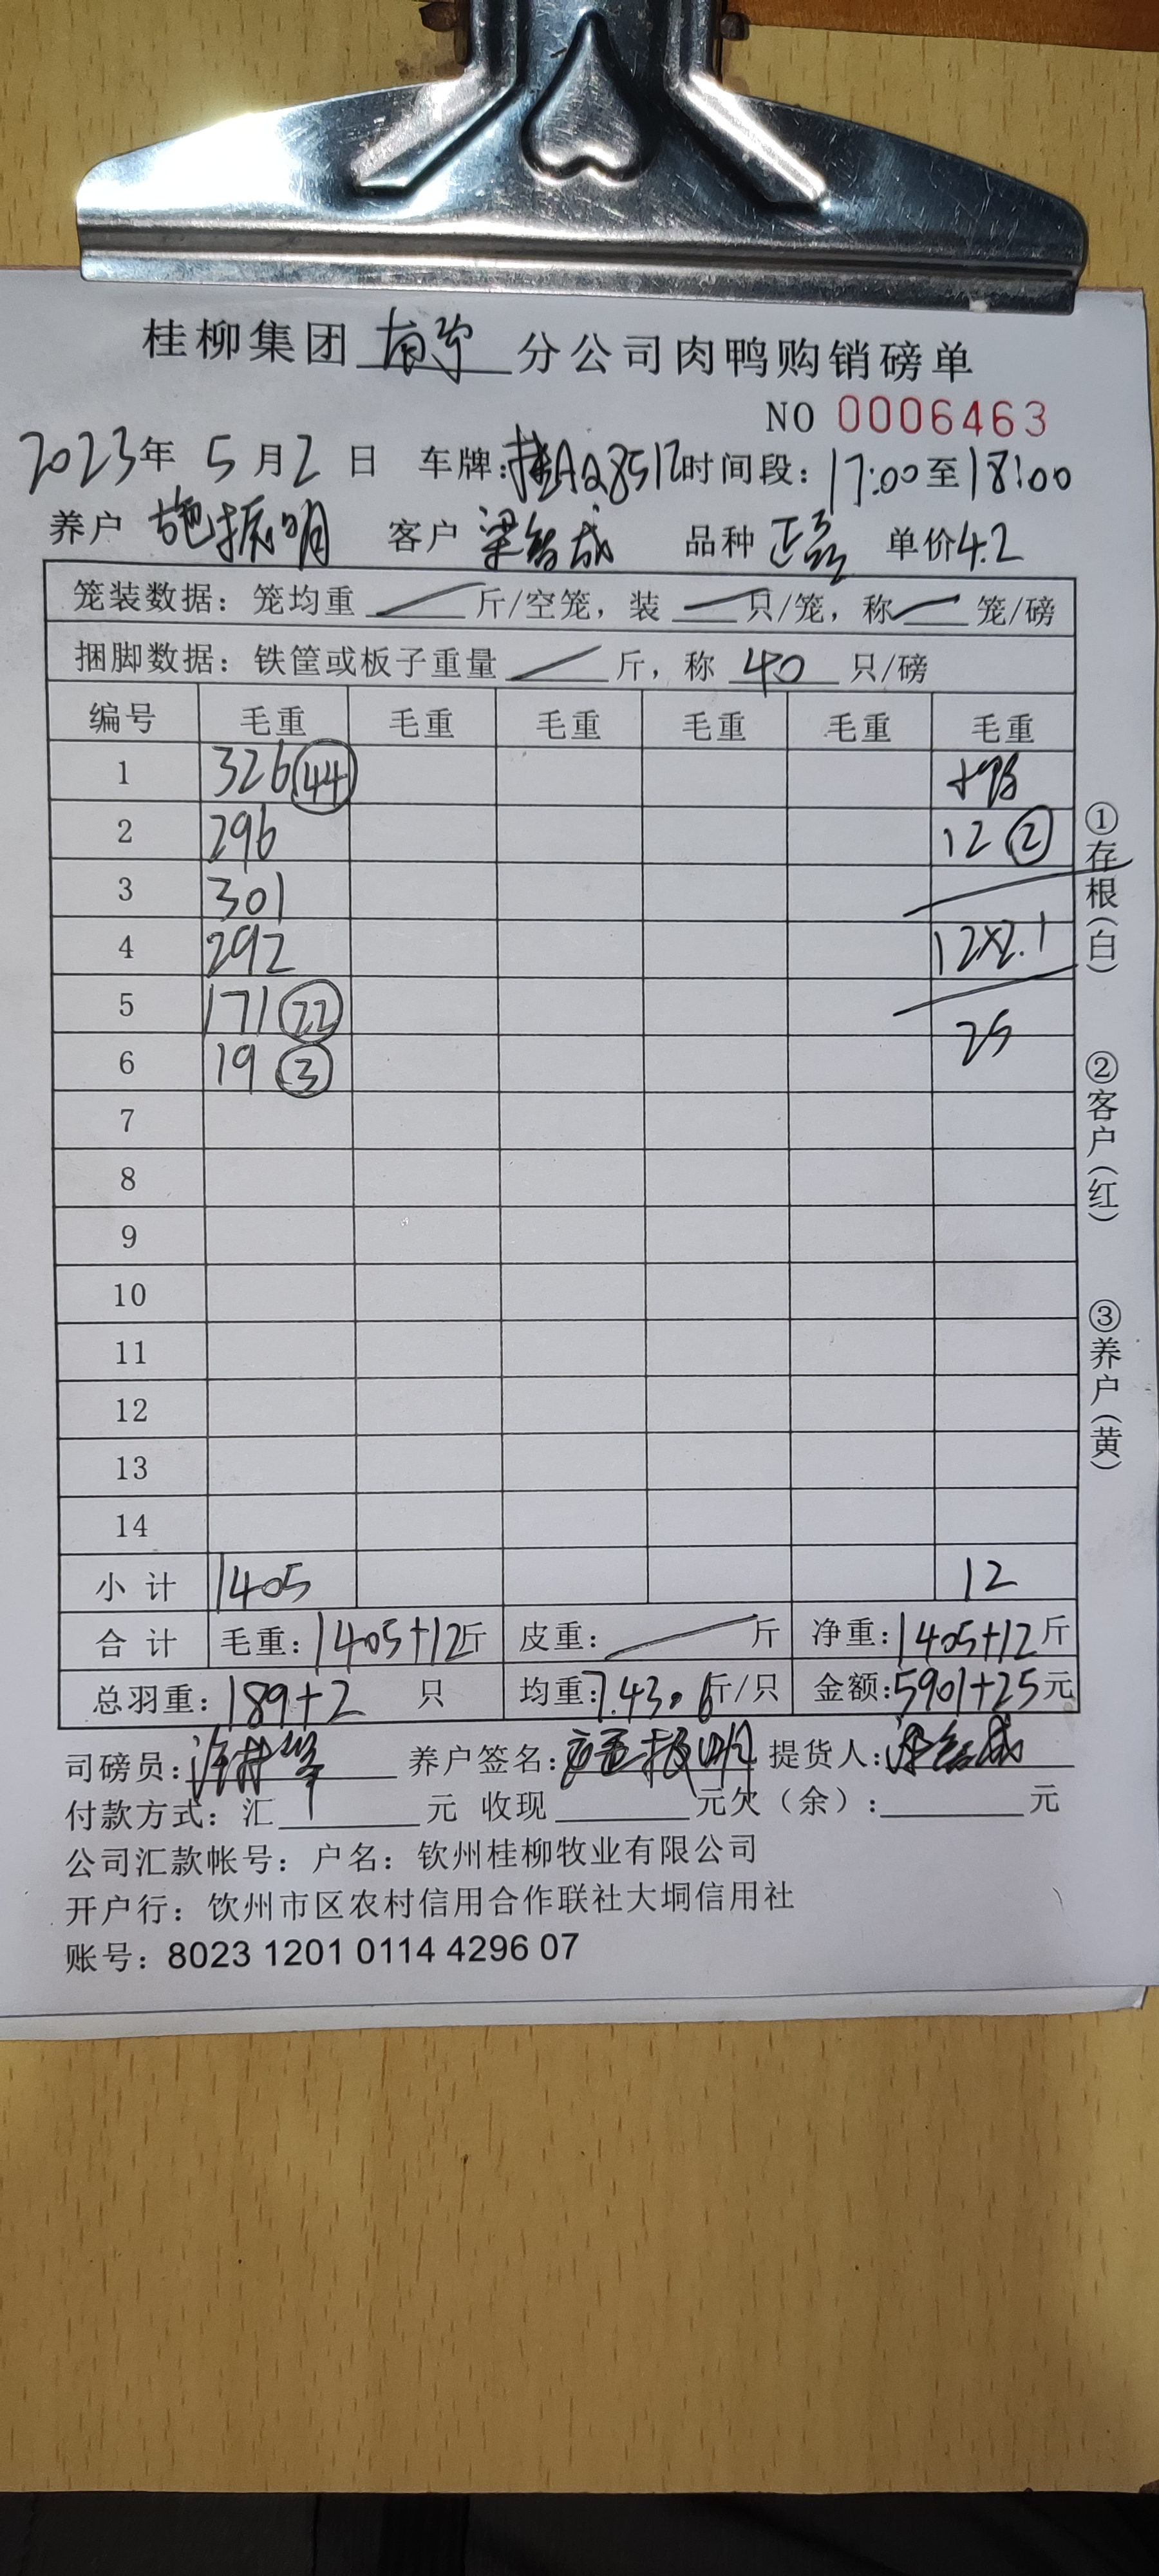 桂柳集团 南宁 分公司肉鸭购销磅单
NO 0006463
2023年 5月2日 车牌:桂AQ8512时间段:17:00至18:00
养户 施振明 客户 梁智成 品种 正品 单价4.2
笼装数据:笼均重 / 斤/空笼,装 / 只/笼,称 / 笼/磅
捆脚数据:铁筐或板子重量 / 斤,称 40 只/磅
编号 毛重 毛重 毛重 毛重 毛重 毛重
1 326 44
2 296 12 2
3 301
4 292 12×2.1
5 171 22
6 19 3 25
7
8
9
10
11
12
13
14
小计 1405 12
合计 毛重:1405+12斤 皮重: / 斤 净重:1405+12斤
总羽重:189+2 只 均重:7.43.6斤/只 金额:5901+25元
司磅员: 养户签名:施振明 提货人:梁智成
付款方式:汇 元 收现 元欠(余): 元
公司汇款帐号:户名:钦州桂柳牧业有限公司
开户行:饮州市区农村信用合作联社大垌信用社
账号:8023 1201 0114 4296 07
①存根(白)
②客户(红)
③养户(黄)